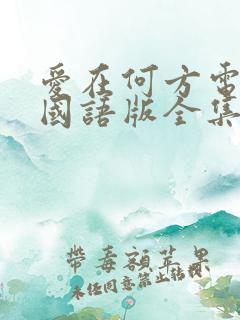 愛在何方電
國語版全集
帶毒額苹果
未任同意禁止轉載